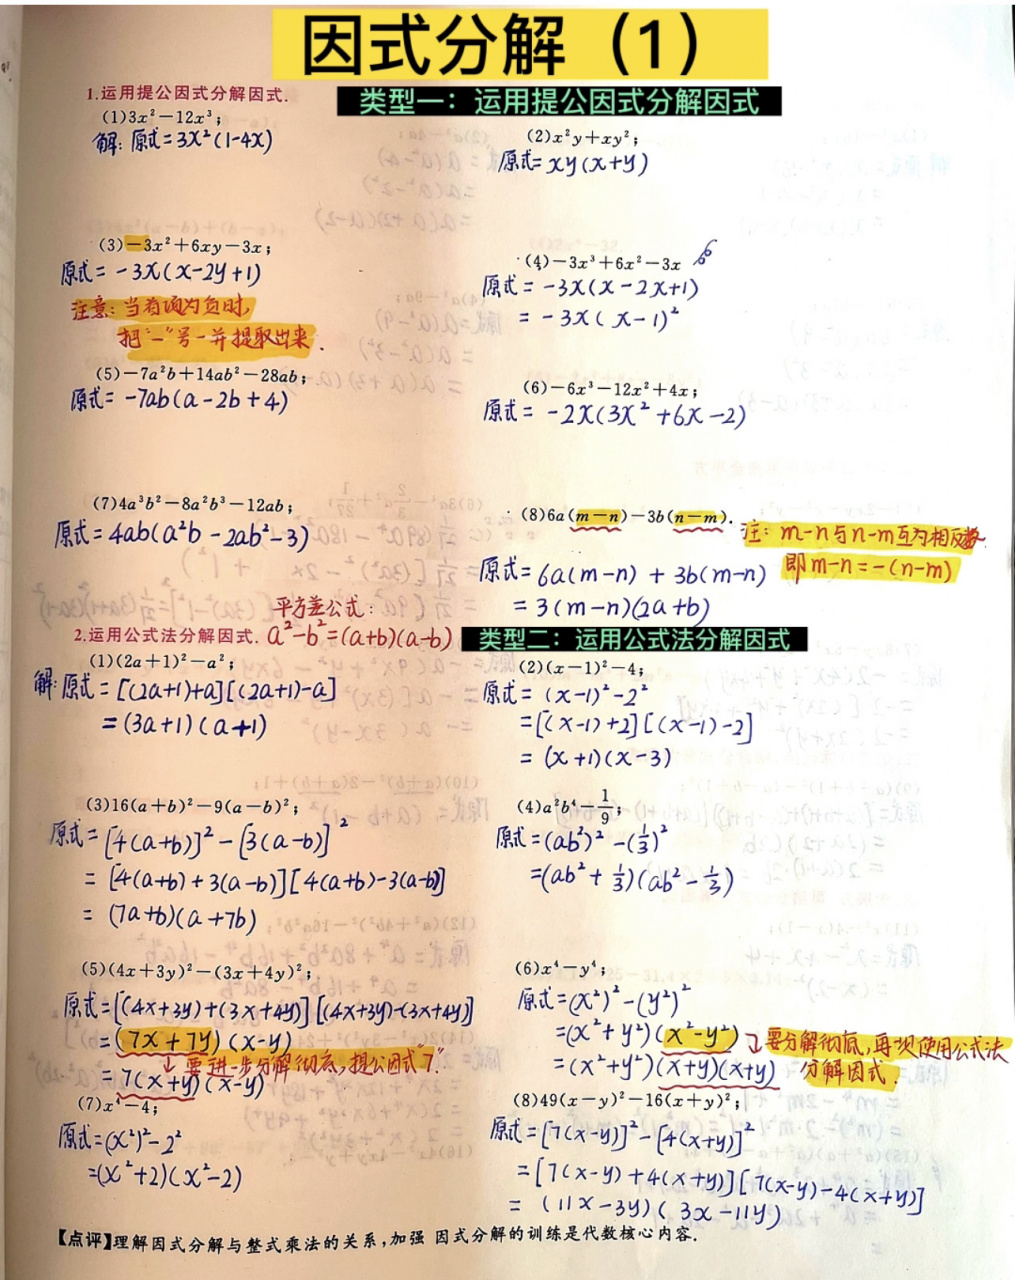 因式分解（1）
1.运用提公因式分解因式.
类型一：运用提公因式分解因式
(1)3x²－12x³；
解：原式=3x²(1-4x)
(2)x²y＋xy²；
原式=xy(x+y)
(3)－3x²＋6xy－3x；
原式=-3x(x-2y+1)
注意：当首项为负时，
把"-"号一并提取出来.
(4)－3x³＋6x²－3x
原式=-3x(x-2x+1)
=-3x(x-1)²
(5)－7a²b＋14ab²－28ab；
原式=-7ab(a-2b+4)
(6)－6x³－12x²＋4x；
原式=-2x(3x²+6x-2)
(7)4a³b²－8a²b³－12ab；
原式=4ab(a²b-2ab²-3)
(8)6a(m－n)－3b(n－m).
注：m-n与n-m互为相反数.
即m-n=-(n-m)
原式=6a(m-n)+3b(m-n)
=3(m-n)(2a+b)
平方差公式：
2.运用公式法分解因式. a²-b²=(a+b)(a-b)
类型二：运用公式法分解因式
(1)(2a＋1)²－a²；
解：原式=[(2a+1)+a][(2a+1)-a]
=(3a+1)(a+1)
(2)(x－1)²－4；
原式=(x-1)²-2²
=[(x-1)+2][(x-1)-2]
=(x+1)(x-3)
(3)16(a＋b)²－9(a－b)²；
原式=[4(a+b)]²-[3(a-b)]²
=[4(a+b)+3(a-b)][4(a+b)-3(a-b)]
=(7a+b)(a+7b)
(4)a²b⁴－1/9；
原式=(ab²)²-(1/3)²
=(ab²+1/3)(ab²-1/3)
(5)(4x＋3y)²－(3x＋4y)²；
原式=[(4x+3y)+(3x+4y)][(4x+3y)-(3x+4y)]
=(7x+7y)(x-y)
↓要进一步分解彻底，提公因式"7"
=7(x+y)(x-y)
(6)x⁴－y⁴；
原式=(x²)²-(y²)²
=(x²+y²)(x²-y²)
=(x²+y²)(x+y)(x+y)
要分解彻底，再次使用公式法
分解因式.
(7)x⁴－4；
原式=(x²)²-2²
=(x²+2)(x²-2)
(8)49(x－y)²－16(x＋y)²；
原式=[7(x-y)]²-[4(x+y)]²
=[7(x-y)+4(x+y)][7(x-y)-4(x+y)]
=(11x-3y)(3x-11y)
【点评】理解因式分解与整式乘法的关系,加强 因式分解的训练是代数核心内容.